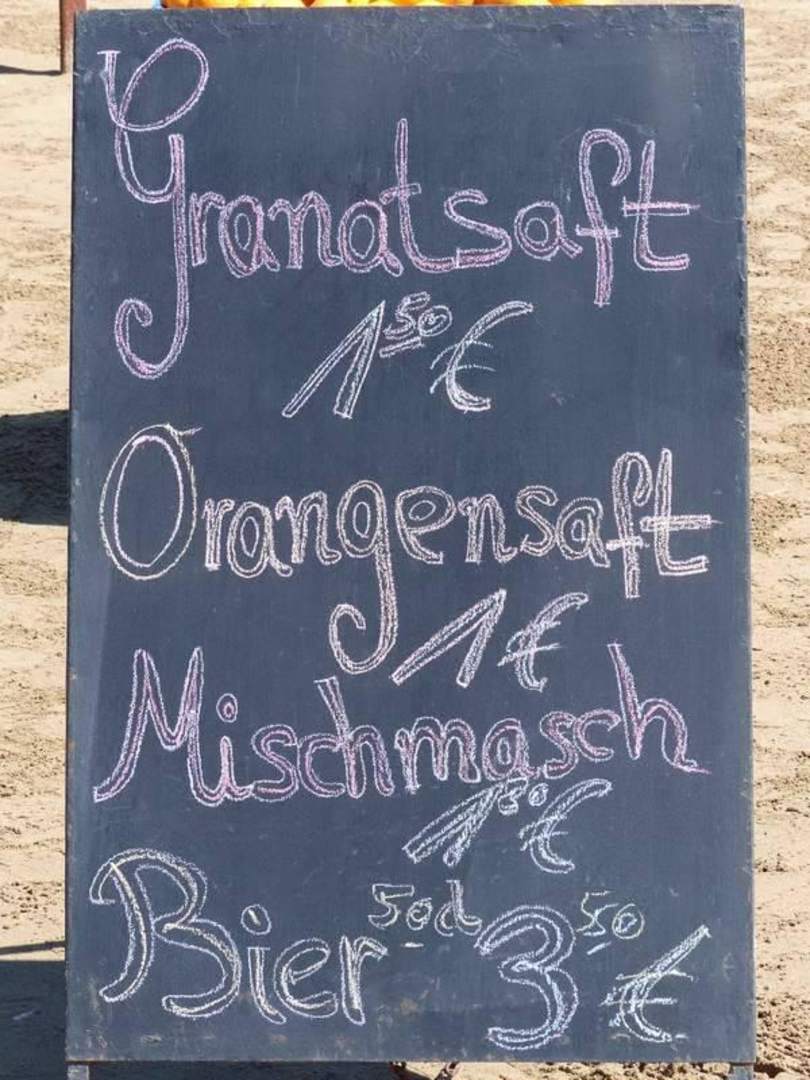 Granatsaft
1 50 €
Orangensaft
1 €
Mischmasch
1 50 €
Bier 50cl 3 50 €